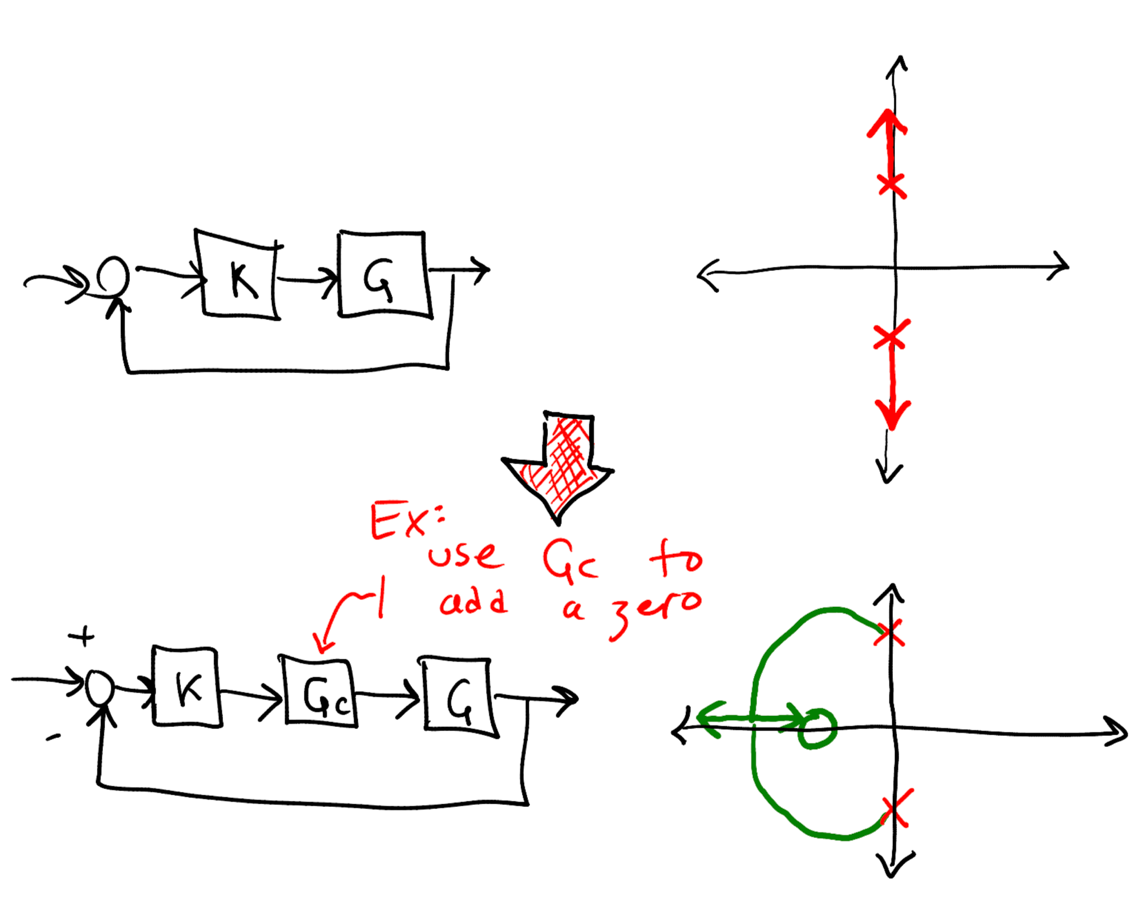 K
G
Ex:
use Gc to
add a zero
+
K
Gc
G
-